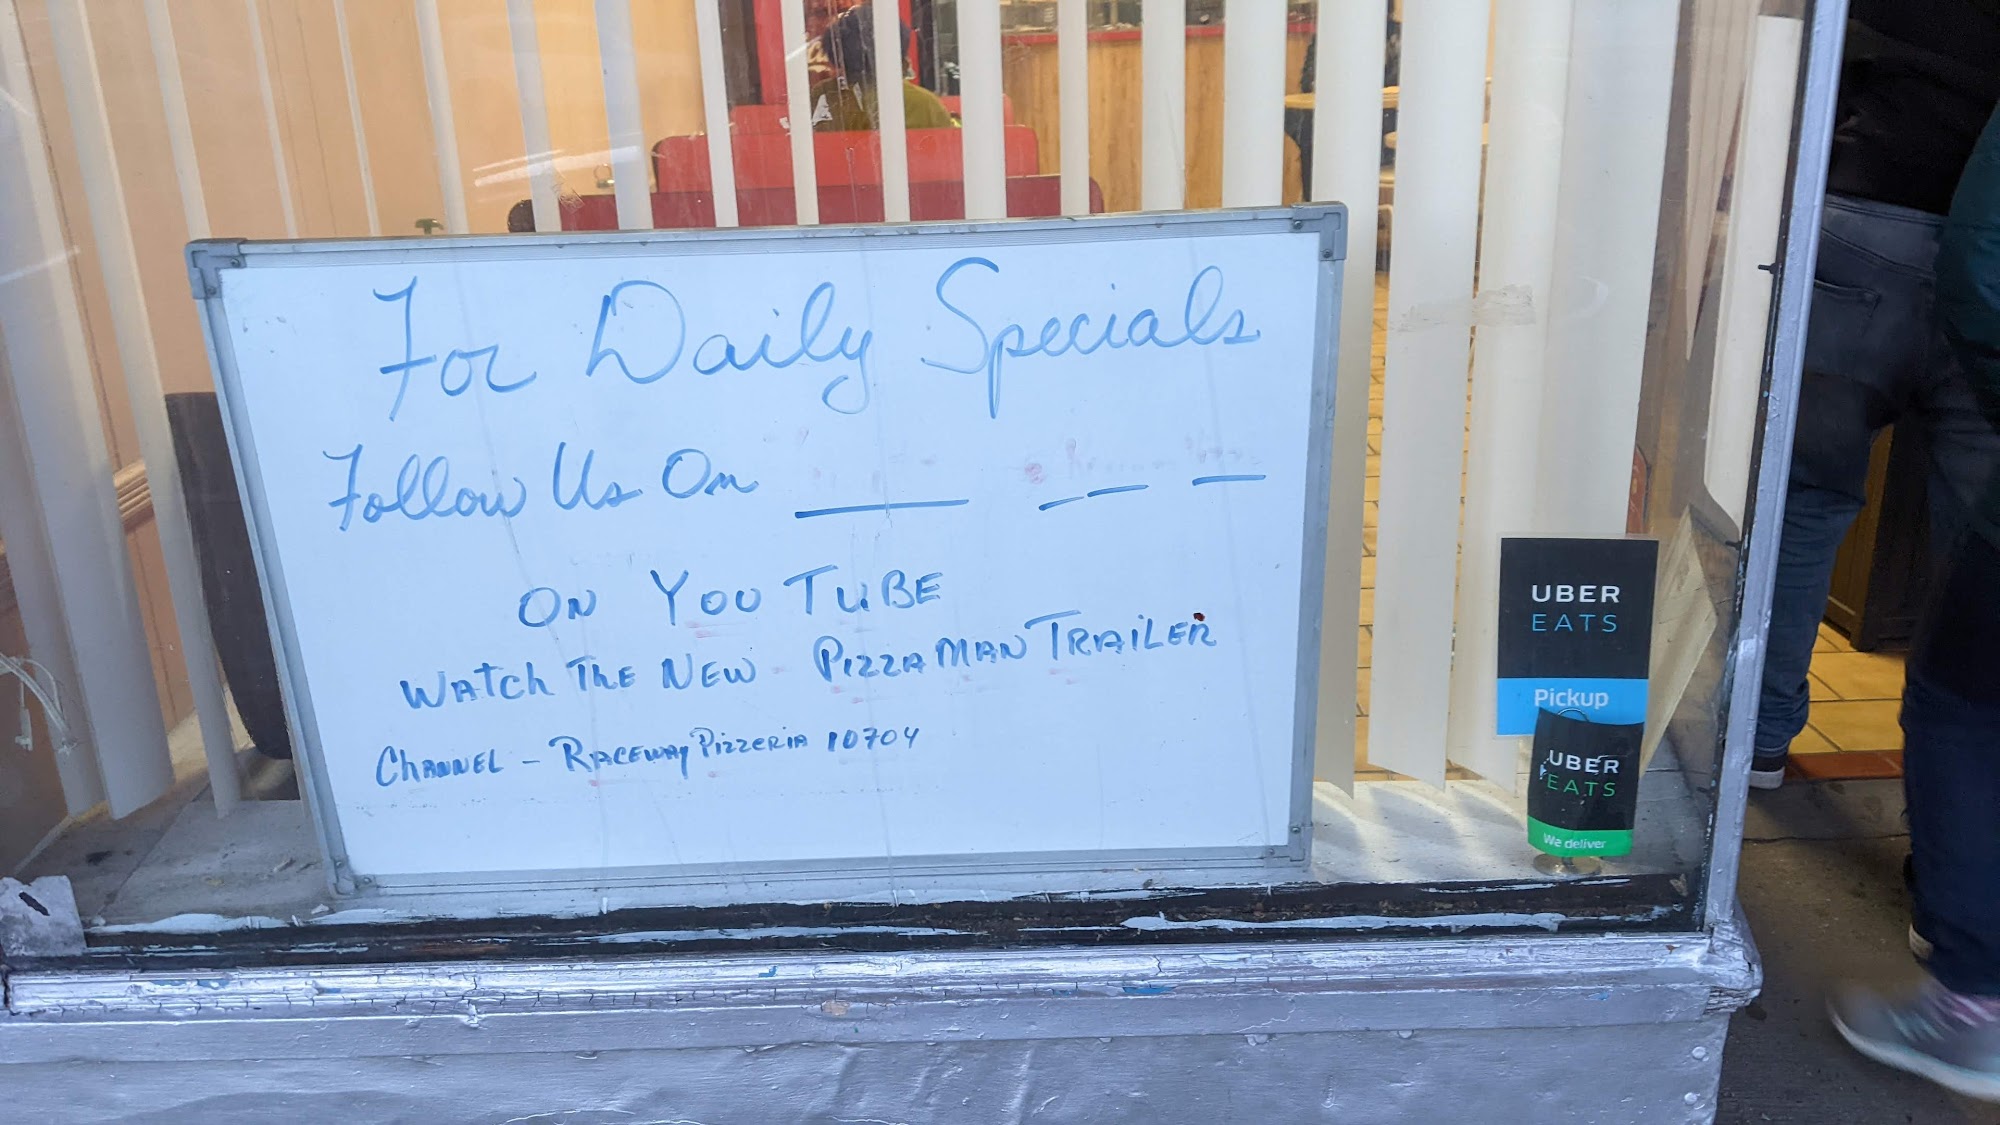 For Daily Specials
Follow Us On
ON YOUTUBE
WATCH THE NEW PIZZAMAN TRAILER
CHANNEL - RACEWAY PIZZERIA 10704
UBER
EATS
Pickup
UBER
EATS
We deliver